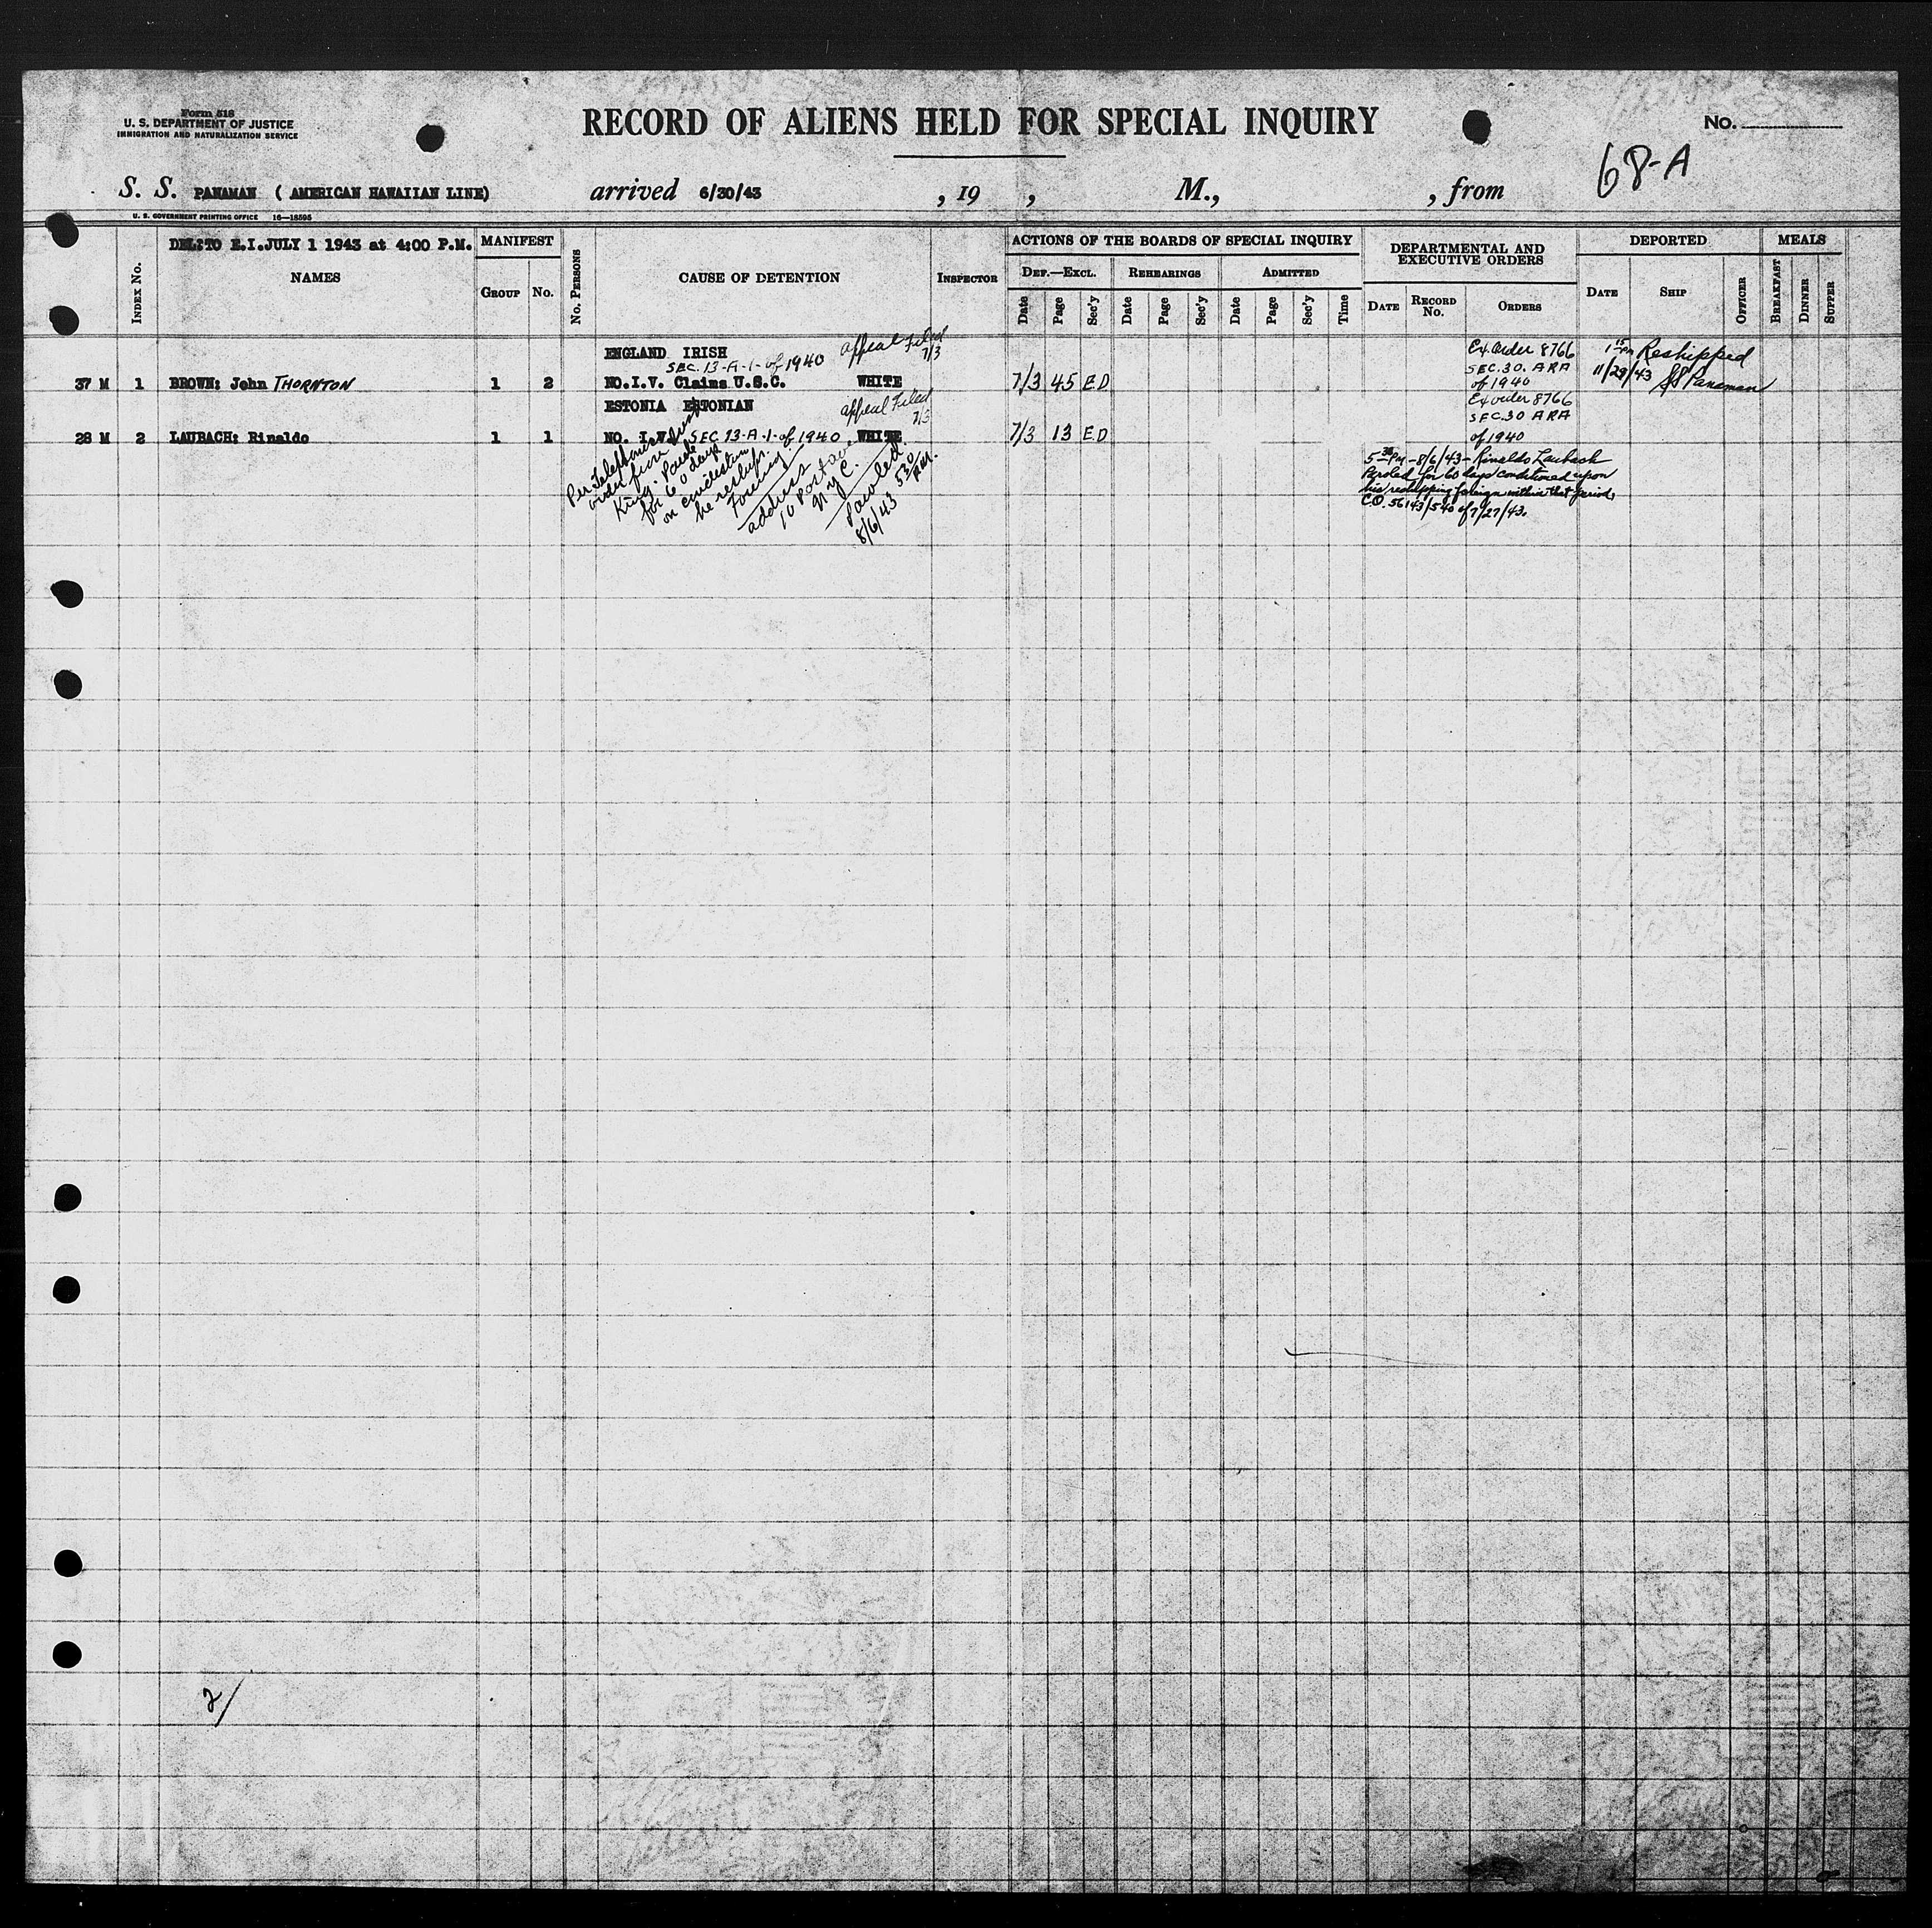 Form 518
U. S. DEPARTMENT OF JUSTICE
IMMIGRATION AND NATURALIZATION SERVICE
RECORD OF ALIENS HELD FOR SPECIAL INQUIRY
No.
68-A
S. S. PANAMAN ( AMERICAN HAWAIIAN LINE) arrived 6/30/43 , 19 , M., , from
U. S. GOVERNMENT PRINTING OFFICE 16—18595
INDEX No.
DEL:TO E.I.JULY 1 1943 at 4:00 P.M.
NAMES
MANIFEST
GROUP No.
No. PERSONS
CAUSE OF DETENTION
INSPECTOR
ACTIONS OF THE BOARDS OF SPECIAL INQUIRY
DEF.—EXCL. REHEARINGS ADMITTED
Date Page Sec'y Date Page Sec'y Date Page Sec'y Time
DEPARTMENTAL AND
EXECUTIVE ORDERS
DATE RECORD No. ORDERS
DEPORTED
DATE SHIP OFFICER
MEALS
BREAKFAST DINNER SUPPER
ENGLAND IRISH appeal Filed 7/3
SEC. 13-A-1-of 1940
37 M 1 BROWN: John THORNTON 1 2 NO.I.V. Claims U.S.C. WHITE 7/3 45 E.D
Ex. Order 8766
SEC.30. ARA
of 1940
1 15 PM Reshipped
11/29/43 SS Panaman
ESTONIA ESTONIAN appeal Filed 7/3
28 M 2 LAUBACH: Rinaldo 1 1 NO. I.V. SEC 13-A-1-of 1940 WHITE 7/3 13 E.D
Ex order 8766
SEC.30 ARA
of 1940
Per Telephonic
order from
King. Parole
for 60 days
on condition
he reships
foreign.
address
10
N.Y.C.
Paroled
8/6/43 530 P.M.
5 30 PM - 8/6/43 - Rinaldo Laubach
Paroled for 60 days conditioned upon
his reshipping foreign within that period,
C.O. 56143/540 of 7/27/43.
2/